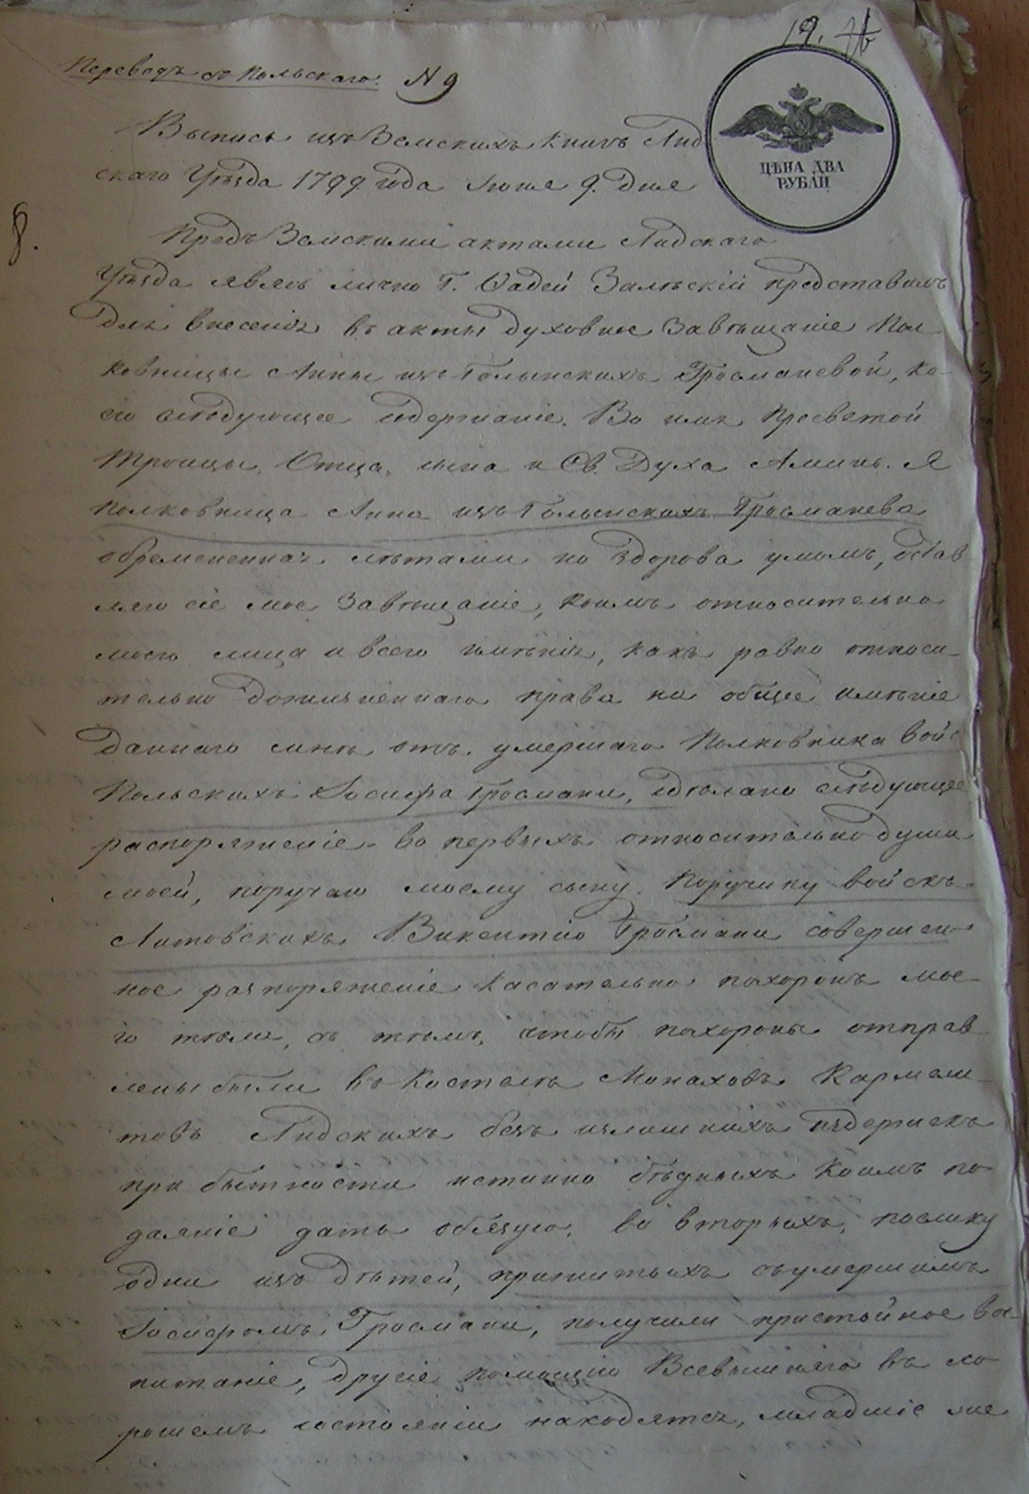 19.
Переводъ съ Польскаго. N 9
ЦѢНА ДВА
РУБЛИ
Выпись изъ Земскихъ книгъ Лид
скаго Уѣзда 1799 года Июня 9. дня
8.
Предъ Земскими актами Лидскаго
Уѣзда явясь лично Г. Фадей Залѣскій представилъ
для внесенія въ акты духовное Завѣщаніе Пол
ковницы Анны изъ Голынскихъ Гросмановой, ко
его слѣдующее содержаніе. Во имя Пресвятой
Троицы, Отца, сына и Св. Духа Аминь. Я
Полковница Анна изъ Голынскихъ Гросманова
обремененная лѣтами но здорова умомъ, остав
ляю сіе мое Завѣщаніе, коимъ относительно
моего лица и всего имѣнія, какъ равно относи
тельно пожизненнаго права на общее имѣніе
даннаго мнѣ отъ умершаго Полковника войс
Польскихъ Іосифа Гросмани, сдѣлано слѣдующее
распоряженіе во первыхъ относительно души
моей, поручаю моему сыну Поручику войскъ
Литовскихъ Викентію Гросмани совершен
ное распоряженіе касательно похоронъ мое
го тѣла, съ тѣмъ, чтобы похороны отправ
лены были въ Костелѣ Монаховъ Кармели
товъ Лидскихъ безъ излишнихъ издержекъ
при бытности истинно бѣдныхъ коимъ по
даяніе дать обязую. во вторыхъ, поелику
одни изъ дѣтей, прижитыхъ съ умершимъ
Іосифомъ Гросмани, получили пристойное вос
питаніе, другіе помощію Всевышняго въ хо
рошемъ состояніи находятся, младшіе же